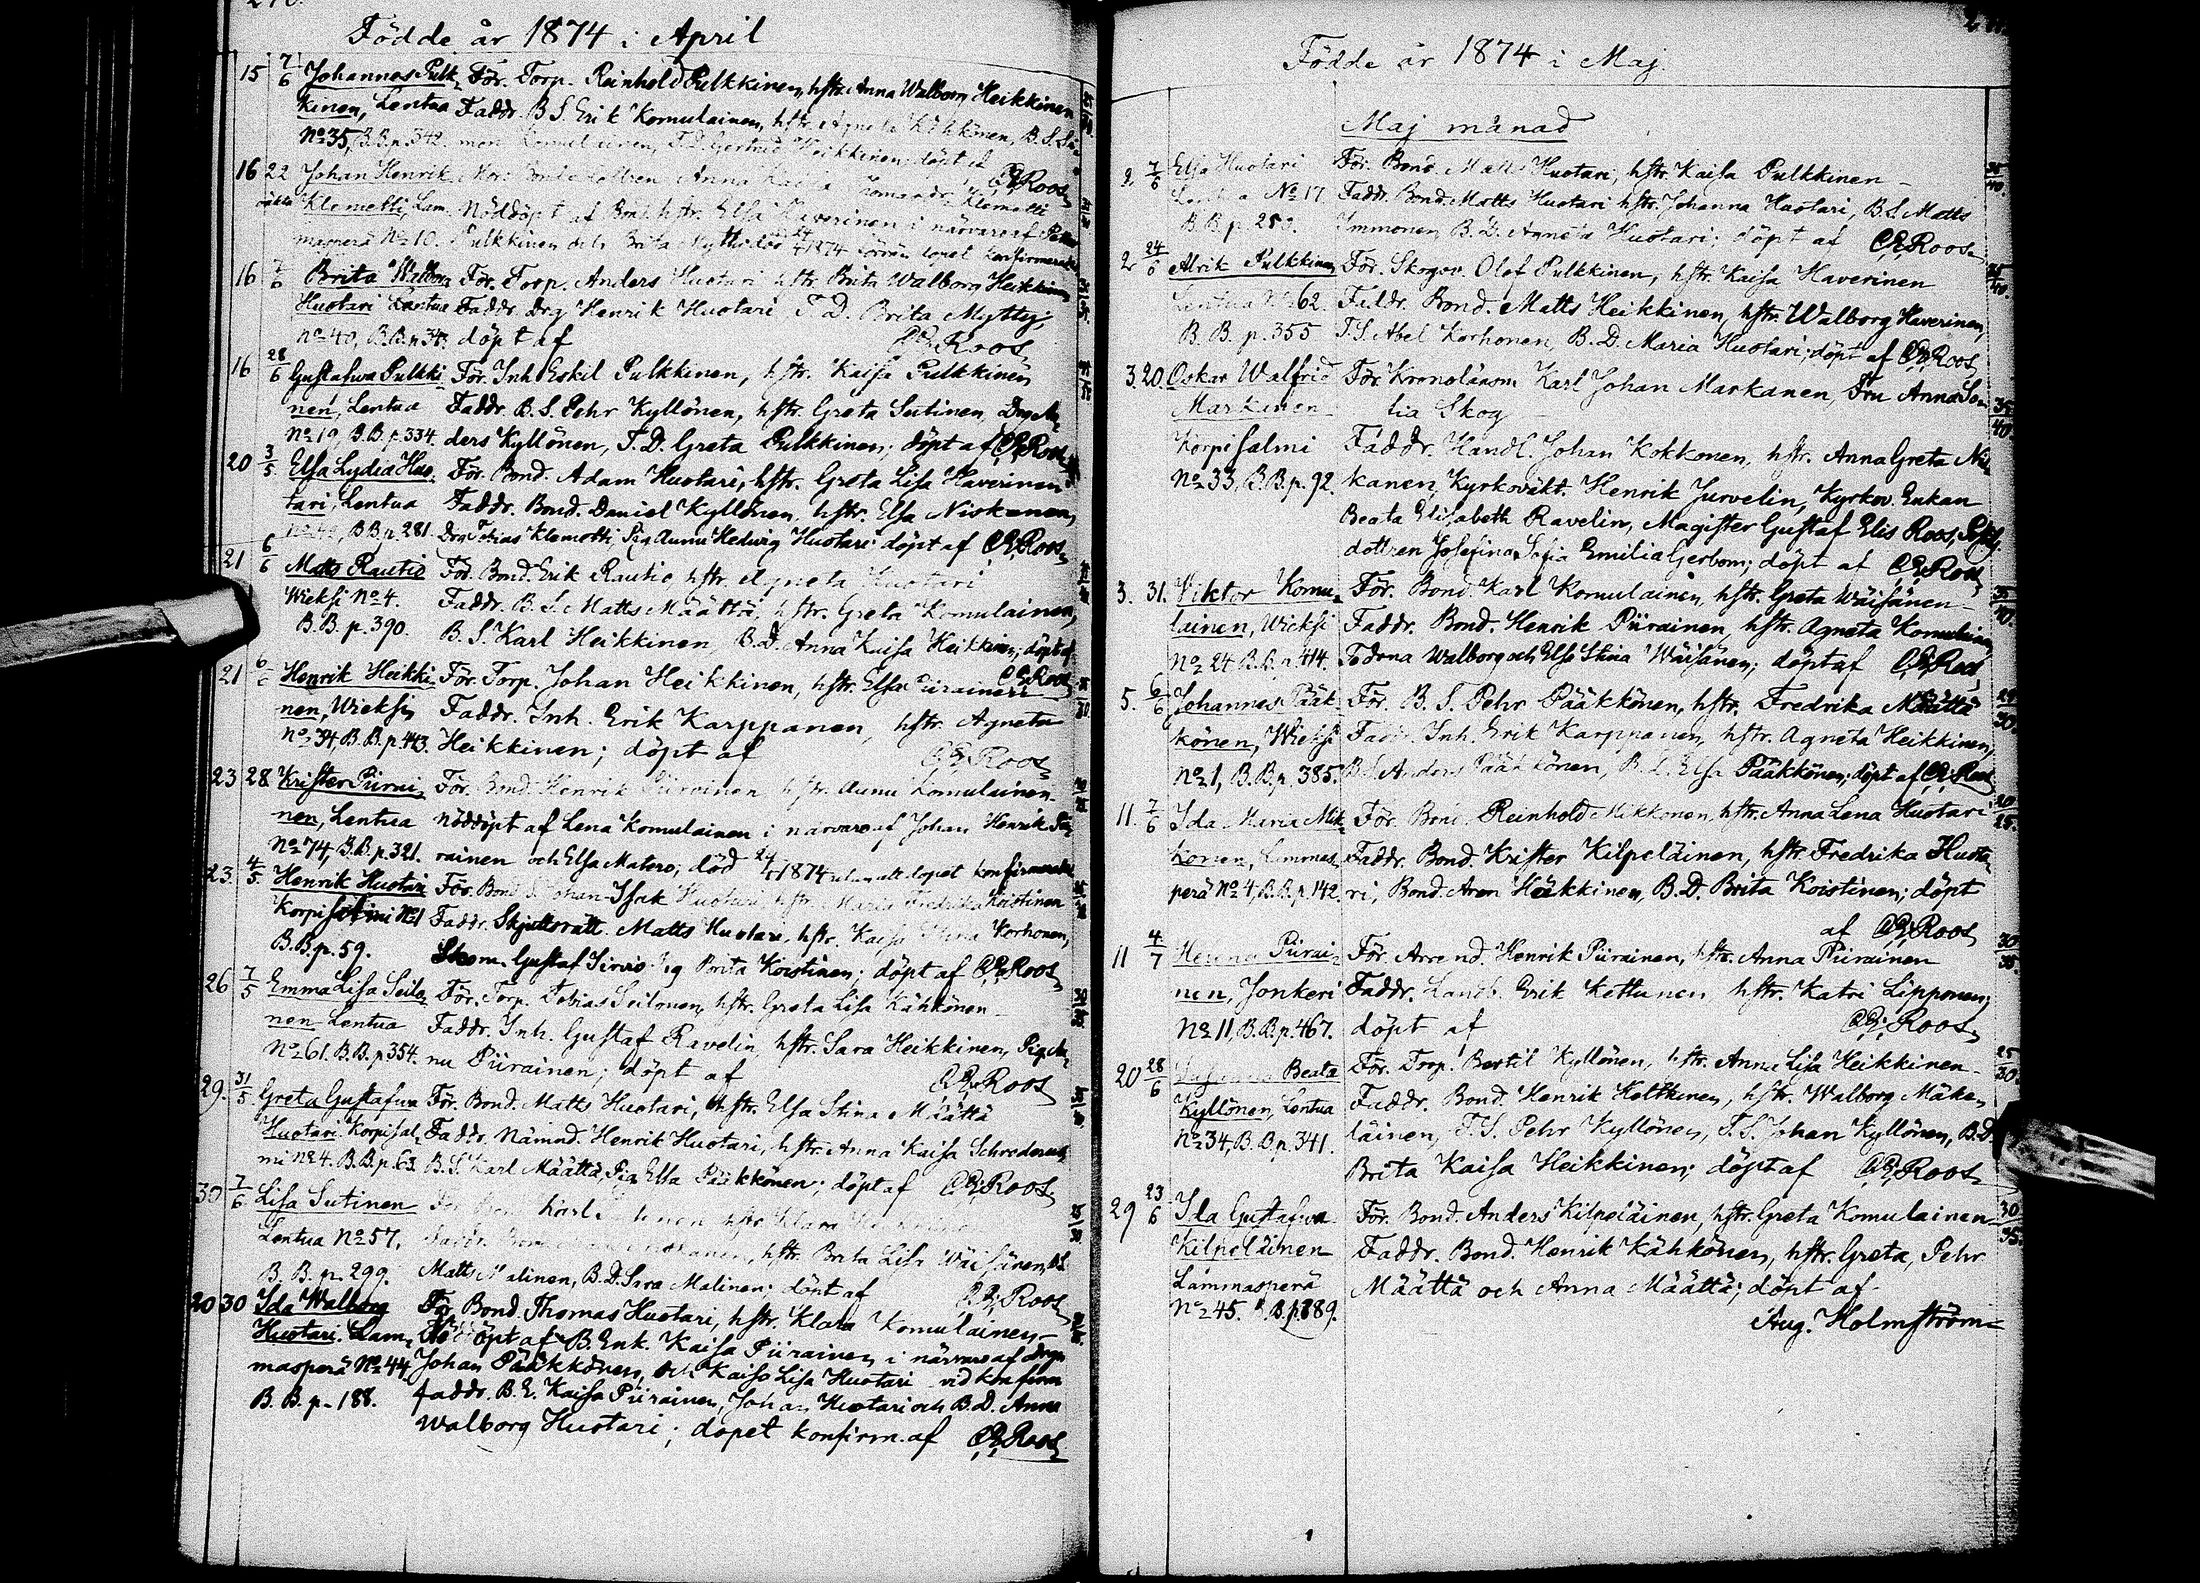 Födde år 1874 i April
15 7/6 Johannes Pulk- För. Torp. Reinhold Pulkkinen, hstr. Anna Walborg Heikkinen
kinen, Lentua Faddr. B.S. Erik Komulainen, hstr. Agneta Kähkönen, B.S. Si-
No 35, B.B.p. 342. mon Komulainen, T.D. Gertrud Heikkinen; döpt af C.E. Roos
16 22 Johan Henrik Anna Kaisa Klemetti
Klemetti, Lam- Nöddöpt af Bond. hstr. Elsa Haverinen i närvaro af
masperä No 10. Pulkkinen och Brita Mytty; död 1874 konfirmerats
16 7/6 Brita Walborg För. Torp. Anders Huotari hstr. Brita Walborg Heikkinen
Huotari Lentua Faddr. Drg Henrik Huotari T.D. Brita Mytty;
No 40, B.B.p. 343. döpt af C.E. Roos
16 28/6 Gustafwa Pulkki- För. Inh. Eskil Pulkkinen, hstr. Kaisa Pulkkinen
nen, Lentua Faddr. B.S. Pehr Kyllönen, hstr. Greta Sutinen, Drg An-
No 19, B.B.p. 334. ders Kyllönen, T.D. Greta Pulkkinen; döpt af C.E. Roos
20 3/5 Elsa Lydia Huo- För. Bond. Adam Huotari, hstr. Greta Lisa Haverinen
tari, Lentua Faddr. Bond. Daniel Kyllönen, hstr. Elsa Niskanen,
B.B.p. 281. Drg Tobias Klemetti, Pig. Aunu Hedwig Huotari; döpt af C.E. Roos
21 6/6 Matts Rautio För. Bond. Erik Rautio hstr. Agneta Huotari
Wieksi No 4. Faddr. B.S. Matts Määttä, hstr. Greta Komulainen,
B.B.p. 390. B.S. Karl Heikkinen, B.D. Anna Kaisa Heikkinen; döpt af
C.E. Roos
21 6/6 Henrik Heikki- För. Torp. Johan Heikkinen, hstr. Elsa Piirainen
nen, Wieksi Faddr. Inh. Erik Karppanen, hstr. Agneta
No 34, B.B.p. 413. Heikkinen; döpt af C.E. Roos
23 28 Krister Piirai- För. Bond. Henrik Piirainen hstr. Aunu Komulainen
nen, Lentua nöddöpt af Lena Komulainen i närvaro af Johan Henrik Pii-
No 74, B.B.p. 321. rainen och Elsa Matero; död 24/4 1874 utan att dopet konfirmerats
23 4/5 Henrik Huotari För. Bond. S. Johan Isak Huotari, hstr. Maria Fredrika Koistinen
Korpisalmi No 1 Faddr. Skjutsrätt. Matts Huotari, hstr. Kaisa Stina Korhonen,
B.B.p. 59. Skom. Gustaf Sirviö Pig Brita Koistinen; döpt af C.E. Roos
26 7/5 Emma Lisa Seilo- För. Torp. Tobias Seilonen, hstr. Greta Lisa Kähkönen
nen Lentua Faddr. Inh. Gustaf Ravelin, hstr. Sara Heikkinen, Pig. An-
No 61. B.B.p. 354. nu Piirainen; döpt af C.E. Roos
29. 31/5 Greta Gustafwa För. Bond. Matts Huotari, hstr. Elsa Stina Määttä
Huotari Korpisal- Faddr. Nämnd. Henrik Huotari, hstr. Anna Kaisa Schroderus
mi No 4. B.B.p. 63. B.S. Karl Määttä, Pig. Elsa Pääkkönen; döpt af C.E. Roos
30 7/6 Lisa Sutinen För. Bond. Karl Sutinen hstr. Klara
Lentua No 57, Faddr. Bond. hstr. Brita Lisa Wäisänen, B.S.
B.B.p. 299. Matts Malinen, B.D. Sara Malinen; döpt af C.E. Roos
20 30 Ida Walborg För. Bond. Thomas Huotari, hstr. Klara Komulainen
Huotari. Lam- Nöddöpt af B. Enk. Kaisa Piirainen i närvaro af Drgn
masperä No 44, Johan Pääkkönen, och Kaisa Lisa Huotari vid konfirm
B.B.p. 188. faddr. B.E. Kaisa Piirainen, Johan Huotari och B.D. Anna
Walborg Huotari; dopet konfirm. af C.E. Roos
Födde år 1874 i Maj
Maj månad
2, 7/6 Elsa Huotari För. Bond. Matts Huotari, hstr. Kaisa Pulkkinen
Lentua No 17. Faddr. Bond. Matts Huotari hstr. Johanna Huotari, B.S. Matts
B.B.p. 253. Immonen, B.D. Agneta Huotari; döpt af C.E. Roos
2 24/6 Alrik Pulkkinen För. Skogsv. Olof Pulkkinen, hstr. Kaisa Haverinen
Lentua No 62. Faddr. Bond. Matts Heikkinen, hstr. Walborg Haverinen,
B.B.p. 355 T.S. Abel Korhonen, B.D. Maria Huotari; döpt af C.E. Roos
3. 20. Oskar Walfrid För. Kronolänsm. Karl Johan Markanen, Fru Anna So-
Markanen fia Skog
Korpisalmi Faddr. Handl. Johan Kokkonen, hstr. Anna Greta Nis-
No 33, B.B.p. 92. kanen, Kyrkoväkt. Henrik Jurvelin, Kyrkov. Enkan
Beata Elisabeth Ravelin, Magister Gustaf Elis Roos,
dottren Josefina Sofia Emilia Gerbom; döpt af C.E. Roos
3. 31. Viktor Komu- För. Bond. Karl Komulainen, hstr. Greta Wäisänen
lainen, Wieksi Faddr. Bond. Henrik Piirainen, hstr. Agneta Komulainen
No 24 B.B.p. 414. Tödrna Walborg och Elsa Stina Wäisänen; döpt af C.E. Roos
5. 6/6 Johannes Pääk- För. B.S. Pehr Pääkkönen, hstr. Fredrika Määttä
könen, Wieksi Faddr. Inh. Erik Karppanen, hstr. Agneta Heikkinen,
No 1, B.B.p. 385. B.S. Anders Pääkkönen, B.D. Elsa Pääkkönen; döpt af C.E. Roos
11. 7/6 Ida Maria Mik- För. Bond. Reinhold Mikkonen, hstr. Anna Lena Huotari
konen, Lammas- Faddr. Bond. Krister Kilpeläinen, hstr. Fredrika Huota-
perä No 4, B.B.p. 142. ri, Bond. Aron Heikkinen, B.D. Brita Koistinen; döpt
af C.E. Roos
11 4/7 Helena Piirai- För. Arrend. Henrik Piirainen, hstr. Anna Piirainen
nen, Jonkeri Faddr. Landb. Erik Kettunen hstr. Katri Lipponen;
No 11, B.B.p. 467. döpt af C.E. Roos
20 28/6 Beata För. Torp. Bertil Kyllönen, hstr. Anna Lisa Heikkinen
Kyllönen, Lentua Faddr. Bond. Henrik Heikkinen, hstr. Walborg Mäke-
No 34, B.B.p. 341. läinen, T.S. Pehr Kyllönen, T.S. Johan Kyllönen, B.D.
Brita Kaisa Heikkinen; döpt af C.E. Roos
29 23/6 Ida Gustafwa För. Bond. Anders Kilpeläinen, hstr. Greta Komulainen
Kilpeläinen Faddr. Bond. Henrik Kähkönen, hstr. Greta, Pehr
Lammasperä Määttä och Anna Määttä; döpt af
No 45. B.B.p. 189. Aug. Holmström